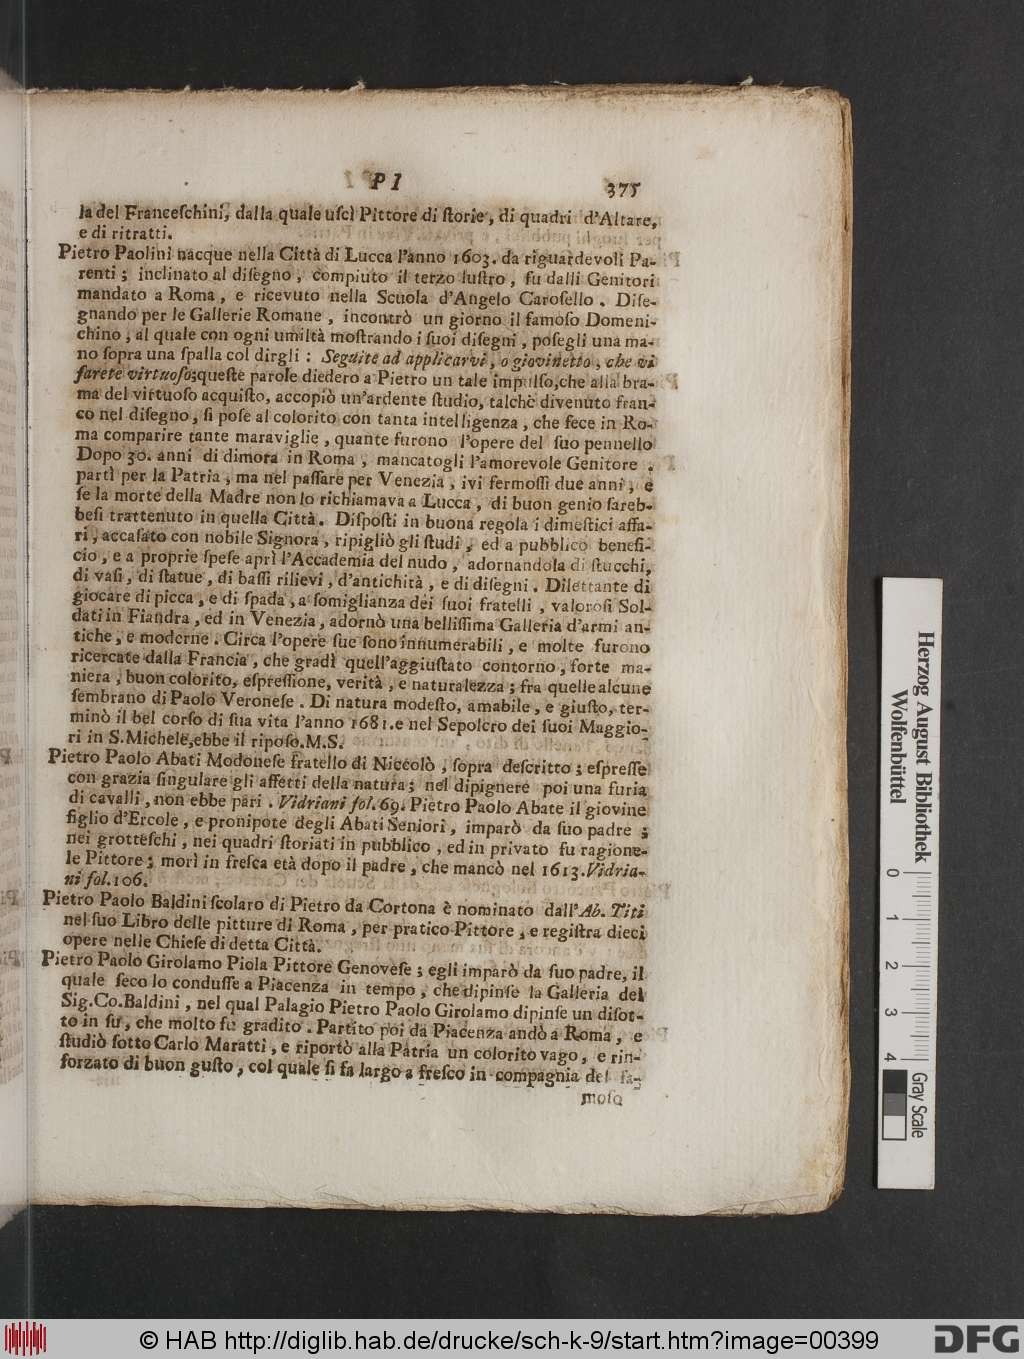 PI 375
la del Franceſchini, dalla quale uſcì Pittore di ſtorie, di quadri d'Altare,
e di ritratti.
Pietro Paolini nacque nella Città di Lucca l'anno 1603. da riguardevoli Pa-
renti; inclinato al diſegno, compiuto il terzo luſtro, fu dalli Genitori
mandato a Roma, e ricevuto nella Scuola d'Angelo Caroſello. Diſe-
gnando per le Gallerie Romane, incontrò un giorno il famoſo Domeni-
chino, al quale con ogni umiltà moſtrando i ſuoi diſegni, poſegli una ma-
no ſopra una ſpalla col dirgli: Seguite ad applicarvi, o giovinetto, che vi
farete virtuoſo; queſte parole diedero a Pietro un tale impulſo, che alla bra-
ma del virtuoſo acquiſto, accopiò un'ardente ſtudio, talchè divenuto fran-
co nel diſegno, ſi poſe al colorito con tanta intelligenza, che fece in Ro-
ma comparire tante maraviglie, quante furono l'opere del ſuo pennello
Dopo 30. anni di dimora in Roma, mancatogli l'amorevole Genitore.
partì per la Patria, ma nel paſſare per Venezia, ivi fermoſſi due anni, e
ſe la morte della Madre non lo richiamava a Lucca, di buon genio ſareb-
beſi trattenuto in quella Città. Diſpoſti in buona regola i dimeſtici affa-
ri, accaſato con nobile Signora, ripigliò gli ſtudi, ed a pubblico benefi-
cio, e a proprie ſpeſe aprì l'Accademia del nudo, adornandola di ſtucchi,
di vaſi, di ſtatue, di baſſi rilievi, d'antichità, e di diſegni. Dilettante di
giocare di picca, e di ſpada, a ſomiglianza dei ſuoi fratelli, valoroſi Sol-
dati in Fiandra, ed in Venezia, adornò una belliſſima Galleria d'armi an-
tiche, e moderne. Circa l'opere ſue ſono innumerabili, e molte furono
ricercate dalla Francia, che gradì quell'aggiuſtato contorno, forte ma-
niera, buon colorito, eſpreſſione, verità, e naturalezza; fra quelle alcune
ſembrano di Paolo Veroneſe. Di natura modeſto, amabile, e giuſto, ter-
minò il bel corſo di ſua vita l'anno 1681. e nel Sepolcro dei ſuoi Maggio-
ri in S. Michele, ebbe il ripoſo. M.S.
Pietro Paolo Abati Modoneſe fratello di Niccolò, ſopra deſcritto; eſpreſſe
con grazia ſingulare gli affetti della natura; nel dipignere poi una furia
di cavalli, non ebbe pari. Vidriani fol. 69. Pietro Paolo Abate il giovine
figlio d'Ercole, e pronipote degli Abati Seniori, imparò da ſuo padre;
nei grotteſchi, nei quadri ſtoriati in pubblico, ed in privato fu ragione-
le Pittore; morì in freſca età dopo il padre, che mancò nel 1613. Vidria-
ni fol. 106.
Pietro Paolo Baldini ſcolaro di Pietro da Cortona è nominato dall'Ab. Titi
nel ſuo Libro delle pitture di Roma, per pratico Pittore, e regiſtra dieci
opere nelle Chieſe di detta Città.
Pietro Paolo Girolamo Piola Pittore Genoveſe; egli imparò da ſuo padre, il
quale ſeco lo conduſſe a Piacenza in tempo, che dipinſe la Galleria del
Sig. Co. Baldini, nel qual Palagio Pietro Paolo Girolamo dipinſe un diſot-
to in ſu, che molto fu gradito. Partito poi da Piacenza andò a Roma, e
ſtudiò ſotto Carlo Maratti, e riportò alla Patria un colorito vago, e rin-
forzato di buon guſto, col quale ſi fa largo a freſco in compagnia del fa-
moſo
Herzog August Bibliothek
Wolfenbüttel
0 1 2 3 4
Gray Scale
© HAB http://diglib.hab.de/drucke/sch-k-9/start.htm?image=00399
DFG